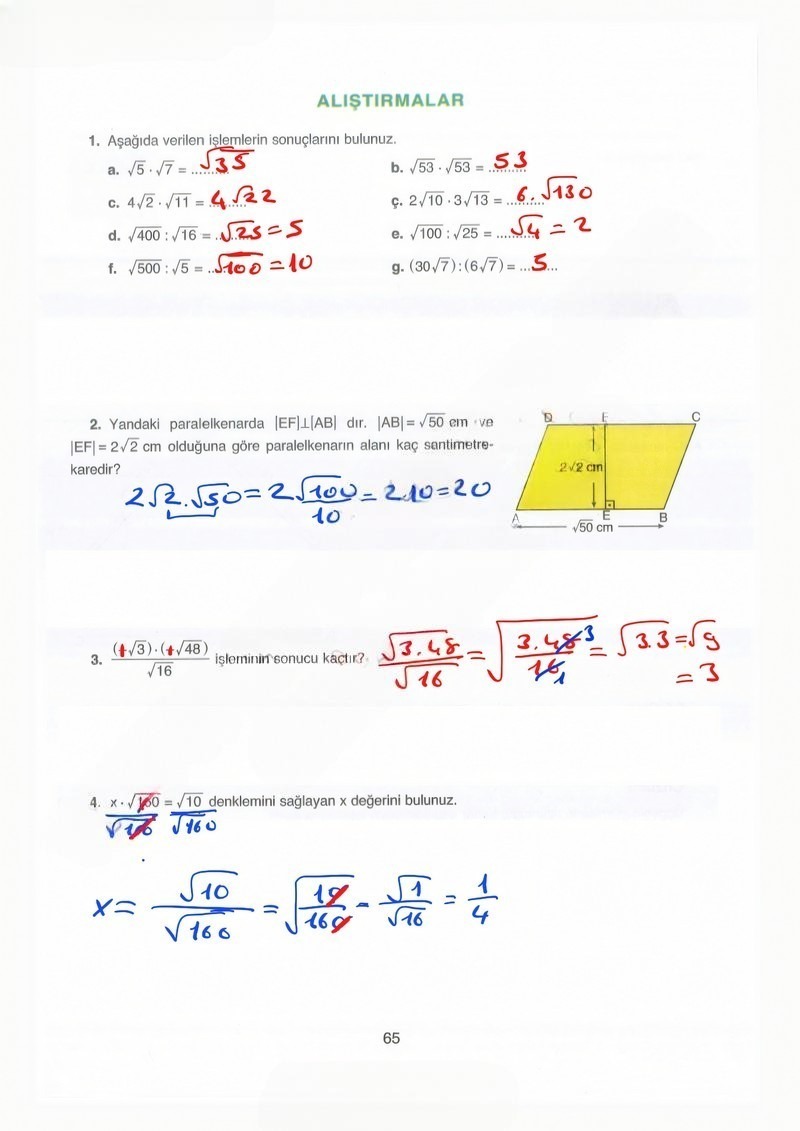 ALIŞTIRMALAR
1. Aşağıda verilen işlemlerin sonuçlarını bulunuz.
a. √5 · √7 = ........ √35
b. √53 · √53 = .......... 53
c. 4√2 · √11 = ........ 4√22
ç. 2√10 · 3√13 = ......... 6.√130
d. √400 : √16 = ........ √25 = 5
e. √100 : √25 = .......... √4 = 2
f. √500 : √5 = ........ √100 = 10
g. (30√7) : (6√7) = ...5...
2. Yandaki paralelkenarda |EF|⊥|AB| dır. |AB| = √50 cm ve
|EF| = 2√2 cm olduğuna göre paralelkenarın alanı kaç santimetre-
karedir?
2√2.√50 = 2√100 = 2.10 = 20
10
D F C
2√2 cm
A E B
√50 cm
3. (+√3)·(+√48) / √16 işleminin sonucu kaçtır? √3.48 / √16 = √(3.48 / 16) = √3.3 = √9
3
1
= 3
4. x · √160 = √10 denklemini sağlayan x değerini bulunuz.
√160 √160
x = √10 / √160 = √(10 / 160) = √1 / √16 = 1 / 4
65